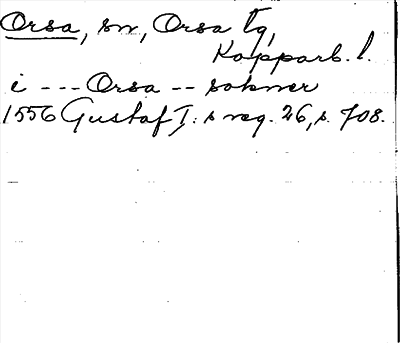 Orsa, sn, Orsa tg,
Kopparb. l.
i --- Orsa -- sokner
1556 Gustaf I:s reg. 26, s. 708.